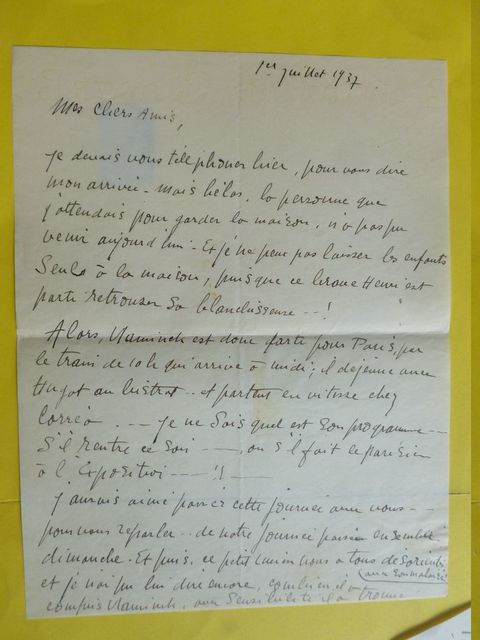 1er juillet 1937
Mes chers Amis,
je devais vous téléphoner hier, pour vous dire
mon arrivée - mais hélas, la personne que
j'attendais pour garder la maison, n'a pas pu
venir aujourd'hui - Et je ne peux pas laisser les enfants
seuls à la maison, puisque ce brave Henri est
parti retrouver sa blanchisseuse --!
Alors, Vlaminck est donc parti pour Paris, par
le train de 10h qui arrive à midi; il déjeune avec
au bistrot .. et partent en vitesse chez
Corréa . -- je ne sais quel est son programme --
S'il rentre ce soir --, ou s'il fait le parisien
à l'Exposition --- !! --
J'aurais aimé passer cette journée avec vous --
pour vous reparler .. de notre journée passée ensemble
dimanche - Et puis, ce petit nous a tous
et je n'ai pu lui dire encore, combien il a
compris Vlaminck, avec sensibilité il a